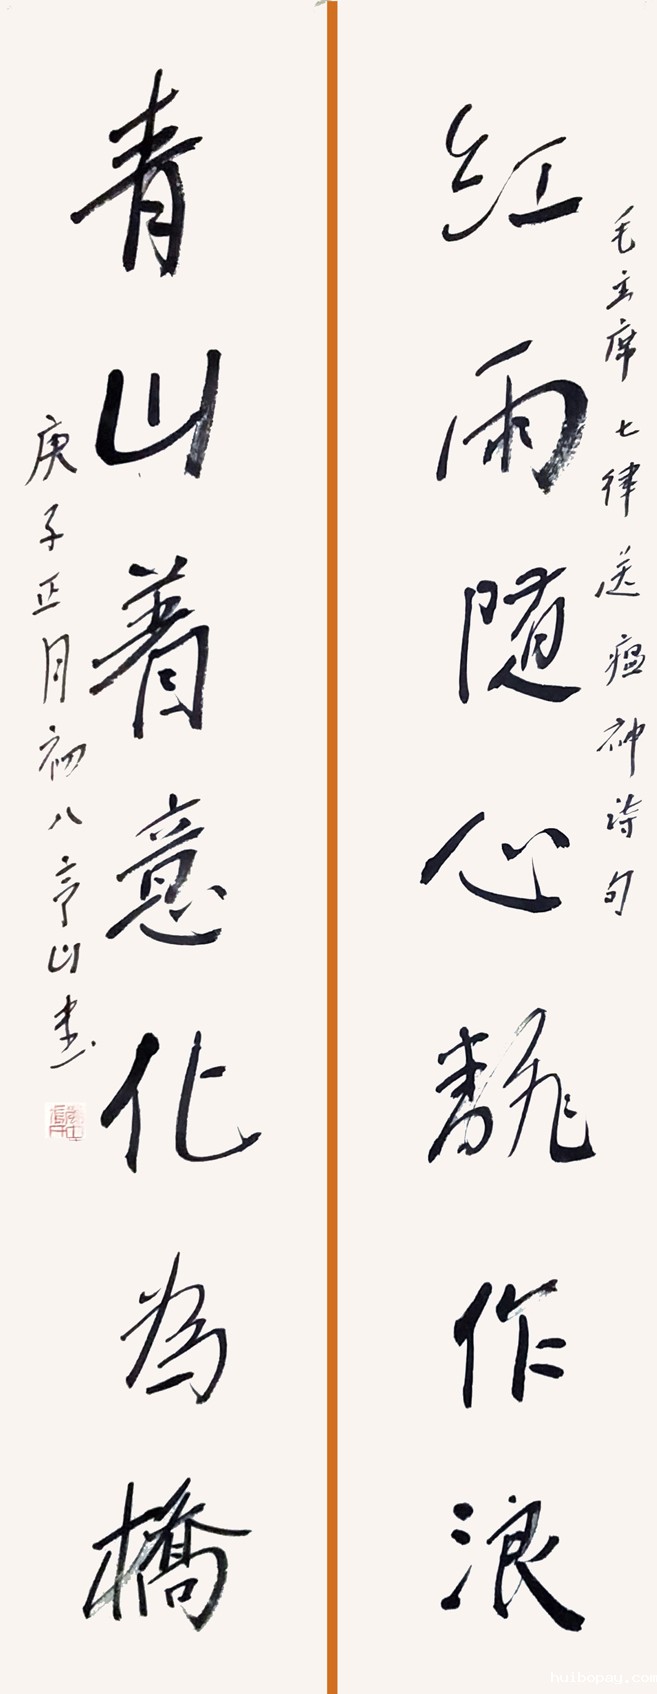 毛主席七律送瘟神诗句
红雨随心飜作浪
青山着意化為橋
庚子正月初八亭山書
huibopay.com